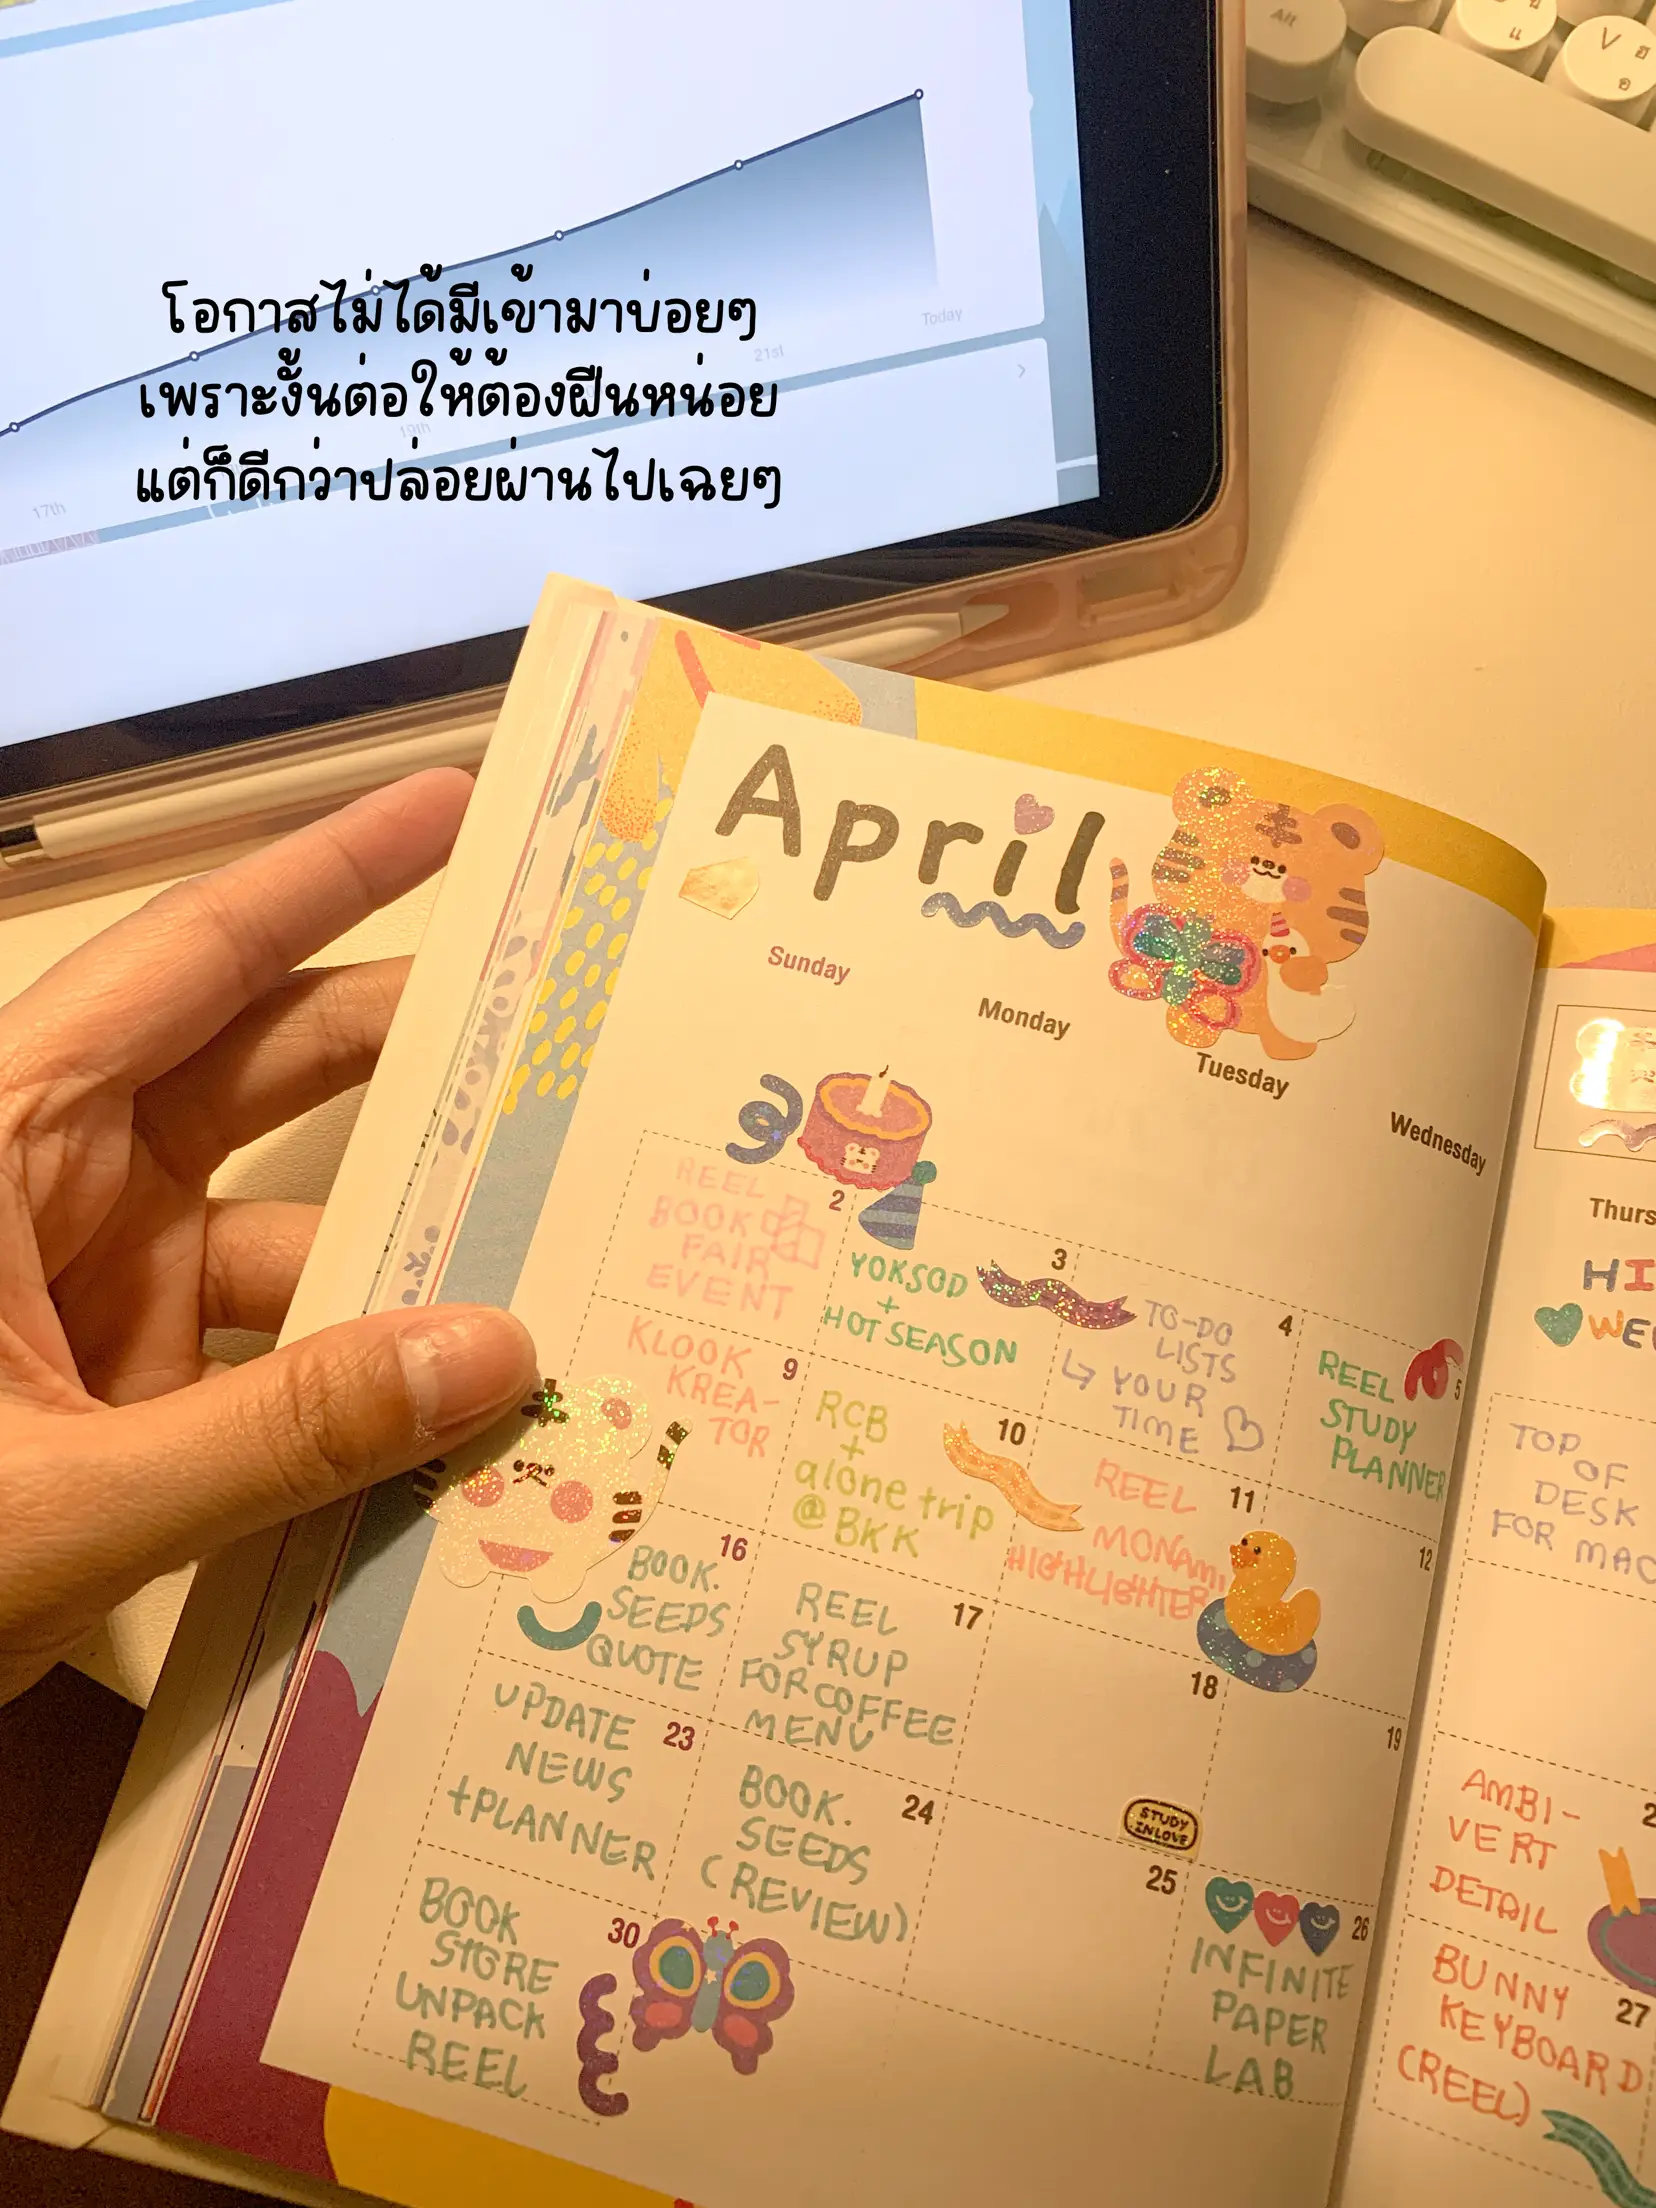 Alt
แ
V ฮ
อ
Today
21st
19th
17th
โอกาสไม่ได้มีเข้ามาบ่อยๆ
เพราะงั้นต่อให้ต้องฝืนหน่อย
แต่ก็ดีกว่าปล่อยผ่านไปเฉยๆ
April
Sunday
Monday
Tuesday
Wednesday
Thurs
2
REEL
BOOK
FAIR
EVENT
3
YOKSOD
+
HOT SEASON
4
TO-DO
LISTS
↳ YOUR
TIME
5
REEL
STUDY
PLANNER
HI
WE
9
KLOOK
KREA-
TOR
10
RCB
+
alone trip
@BKK
11
REEL
MONAMI
HIGHLIGHTER
12
TOP
OF
DESK
FOR MAC
16
BOOK.
SEEDS
QUOTE
17
REEL
SYRUP
FOR COFFEE
MENU
18
19
23
UPDATE
NEWS
+PLANNER
24
BOOK.
SEEDS
(REVIEW)
25
STUDY
IN LOVE
26
INFINITE
PAPER
LAB
2
AMBI-
VERT
DETAIL
30
BOOK
STORE
UNPACK
REEL
27
BUNNY
KEYBOARD
(REEL)